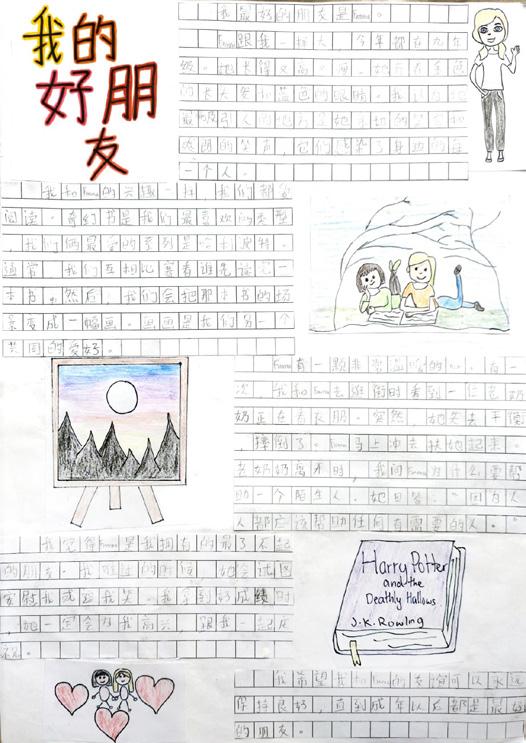 我的
好朋
友
我最好的朋友是Emma。
Emma跟我一样大，今年都在九年
级。她长得又高又
的长头发和蓝色的眼睛。我
引人的地方是她
的笑声，它们感染了身边的每
一个人。
我和Emma的兴趣一样，我们都爱
阅读。奇幻书是我们最喜欢的类型
，我们俩最爱的系列是哈利波特。
通常，我们互相比赛看谁先读完一
本书。然后，我们会把那本书的场
景变成一幅画。画画是我们另一个
共同的爱好。
Emma有一颗非常善良的心。有一
次，我和Emma去逛街时看到一位老奶
奶正在
，摔倒了。Emma马上冲去扶她起来。
老奶奶离开时，我问Emma为什么要帮
助一个陌生人。她回答：“因为人
人都应该帮助任何有需要的人。”
我觉得Emma是我拥有的最了不起
的朋友。我难过的时候，她会试图
安慰我或逗我笑。我拿到好成绩时
，她一定会为我高兴，跟我一起庆
祝。
Harry Potter
and the
Deathly Hallows
J.K. Rowling
我希望我和Emma的友谊可以永远
保持良好，直到成年以后都是最好
的朋友。